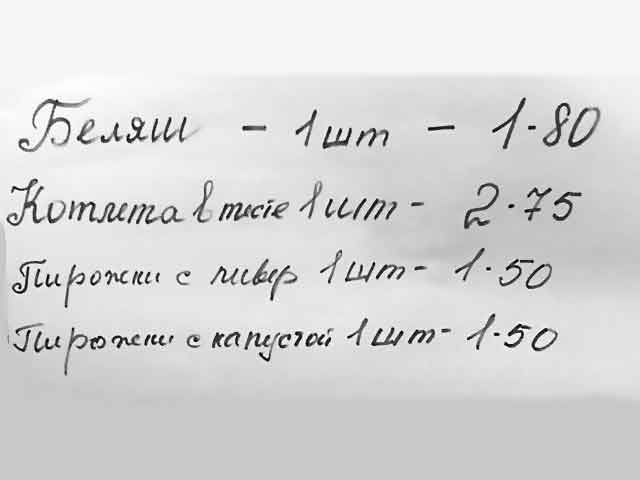 Беляш - 1шт - 1-80
Котлета в тесте 1шт - 2-75
Пирожки с ливер 1шт - 1-50
Пирожки с капустой 1шт - 1-50